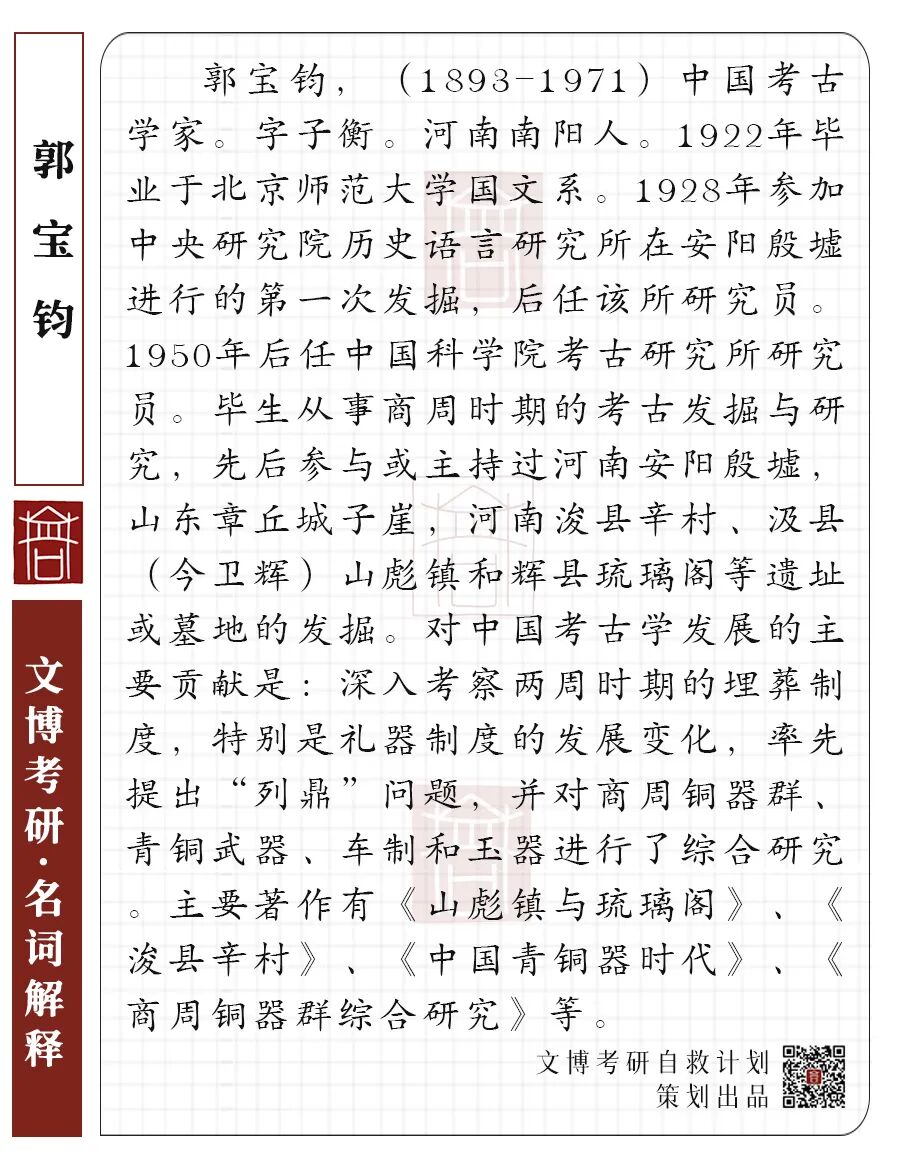 郭宝钧
文博考研·名词解释
郭宝钧，（1893-1971）中国考古
学家。字子衡。河南南阳人。1922年毕
业于北京师范大学国文系。1928年参加
中央研究院历史语言研究所在安阳殷墟
进行的第一次发掘，后任该所研究员。
1950年后任中国科学院考古研究所研究
员。毕生从事商周时期的考古发掘与研
究，先后参与或主持过河南安阳殷墟，
山东章丘城子崖，河南浚县辛村、汲县
（今卫辉）山彪镇和辉县琉璃阁等遗址
或墓地的发掘。对中国考古学发展的主
要贡献是：深入考察两周时期的埋葬制
度，特别是礼器制度的发展变化，率先
提出“列鼎”问题，并对商周铜器群、
青铜武器、车制和玉器进行了综合研究
。主要著作有《山彪镇与琉璃阁》、《
浚县辛村》、《中国青铜器时代》、《
商周铜器群综合研究》等。
文博考研自救计划
策划出品